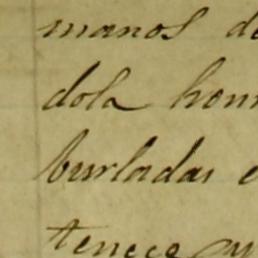 manos de
dola hon
burladas e
tenece y